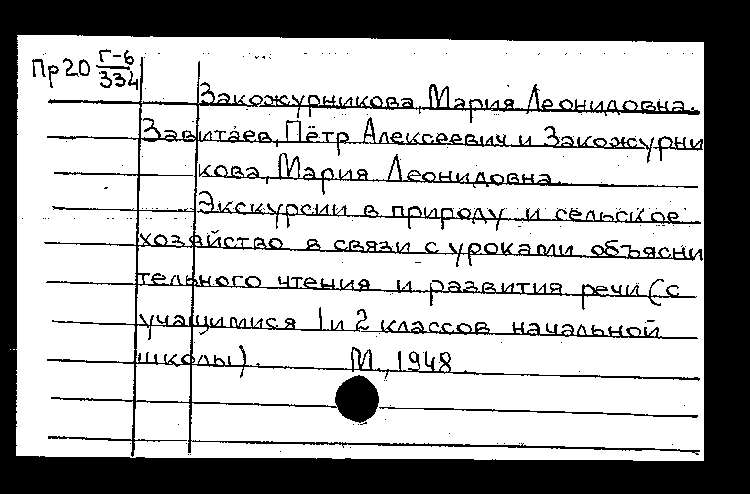 Пр20 Г-6/334
Закожурникова, Мария Леонидовна.
Завитаев, Пётр Алексеевич и Закожурни
кова, Мария Леонидовна.
Экскурсии в природу и сельское
хозяйство в связи с уроками объясни
тельного чтения и развития речи (с
учащимися 1 и 2 классов начальной
школы). М., 1948.